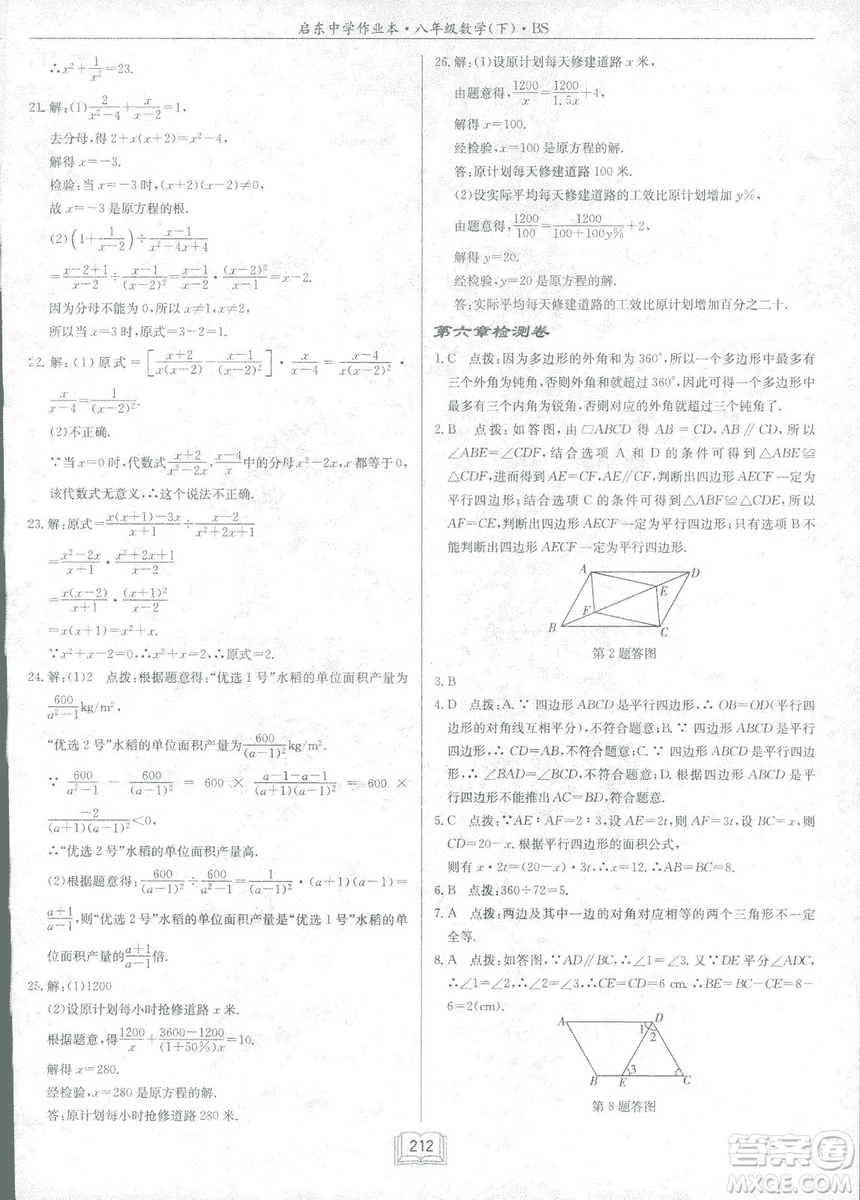 启东中学作业本·八年级数学(下)·BS
∴x²+1/x²=23.
21.解:(1)2/(x²-4)+x/(x-2)=1,
去分母,得2+x(x+2)=x²-4,
解得x=-3.
检验:当x=-3时,(x+2)(x-2)≠0,
故x=-3是原方程的根.
(2)(1+1/(x-2))÷(x-1)/(x²-4x+4)
=(x-1)/(x-2)÷(x-1)/(x-2)²=(x-1)/(x-2)·(x-2)²/(x-1)=x-2.
因为分母不能为0,所以x≠1,x≠2,
所以当x=0时,原式=-2.
22.解:(1)原式=[(x+2)/(x(x-2))-(x-1)/(x-2)²]·x/(x-4)=(x-4)/(x(x-2)²)·
x/(x-4)=1/(x-2)².
(2)不正确.
∵当x=0时,代数式(x+2)/(x²-2x),(x-4)/x中的分母x²-2x,x都等于0,
该代数式无意义,∴这个说法不正确.
23.解:原式=(x(x+1)-3x)/(x+1)÷(x-2)/(x²+2x+1)
=(x²-2x)/(x+1)÷(x-2)/(x+1)²
=x(x-2)/(x+1)·(x+1)²/(x-2)
=x(x+1)=x²+x.
∵x²+x-2=0,∴x²+x=2,∴原式=2.
24.解:(1)2 点拨:根据题意得:“优选1号”水稻的单位面积产量为
600/(a²-1)kg/m²,
“优选2号”水稻的单位面积产量为600/(a-1)²kg/m².
∵ 600/(a²-1) - 600/(a-1)² = 600 × (a-1-a-1)/((a+1)(a-1)²) = 600 ×
-2/((a+1)(a-1)²)<0,
∴“优选2号”水稻的单位面积产量高.
(2)根据题意得:600/(a-1)²÷600/(a²-1)=600/(a-1)²·(a+1)(a-1)/600=
(a+1)/(a-1),则“优选2号”水稻的单位面积产量是“优选1号”水稻的单
位面积产量的(a+1)/(a-1)倍.
25.解:(1)1200
(2)设原计划每小时抢修道路x米.
根据题意,得1200/x+(3600-1200)/((1+50%)x)=10.
解得x=280.
经检验,x=280是原方程的解.
答:原计划每小时抢修道路280米.
26.解:(1)设原计划每天修建道路x米,
由题意得,1200/x=1200/1.5x+4,
解得x=100.
经检验,x=100是原方程的解.
答:原计划每天修建道路100米.
(2)设实际平均每天修建道路的工效比原计划增加y%,
由题意得,1200/100=1200/(100+100y%)+2,
解得y=20.
经检验,y=20是原方程的解.
答:实际平均每天修建道路的工效比原计划增加百分之二十.
第六章检测卷
1.C 点拨:因为多边形的外角和为360°,所以一个多边形中最多有
三个外角为钝角,否则和就超过360°,因此可得一个多边形中
最多有三个内角为锐角,否则对应的外角就超过三个钝角了.
2.B 点拨:如答图,由▱ABCD得AB=CD,所以
∠ABE=∠CDF,结合选项A和D的条件可得到△ABE≌
△CDF,进而得到AE=CF,AE∥CF,判断出四边形AECF一定为
平行四边形;结合选项C的条件可得到△ABF≌△CDE,所以
AF=CE,判断出四边形AECF一定为平行四边形;只有选项B不
能判断出四边形AECF一定为平行四边形.
A D
E
F
B C
第2题答图
3.B
4.D 点拨:A.∵四边形ABCD是平行四边形,∴OB=OD(平行四
边形的对角线互相平分),不符合题意;B.∵四边形ABCD是平行
四边形,∴CD=AB,不符合题意;C.∵四边形ABCD是平行四边
形,∴∠BAD=∠BCD,不符合题意;D.根据四边形ABCD是平行
四边形不能推出AC=BD,符合题意.
5.C 点拨:∵AE∶AF=2∶3,设AE=2t,则AF=3t,设BC=x,则
CD=20-x.根据平行四边形的面积公式,
则有x·2t=(20-x)·3t,解得x=12.∴AB=20-BC=8.
6.B 点拨:360÷72=5.
7.A 点拨:两边及其中一边的对角对应相等的两个三角形不一定
全等.
8.A 点拨:如答图,∵AD∥BC,∴∠1=∠3.又∵DE平分∠ADC,
∴∠1=∠2,∴∠2=∠3,∴CE=CD=6cm,∴BE=BC-CE=8-
6=2(cm).
A D
1
2
3
B E C
第8题答图
212